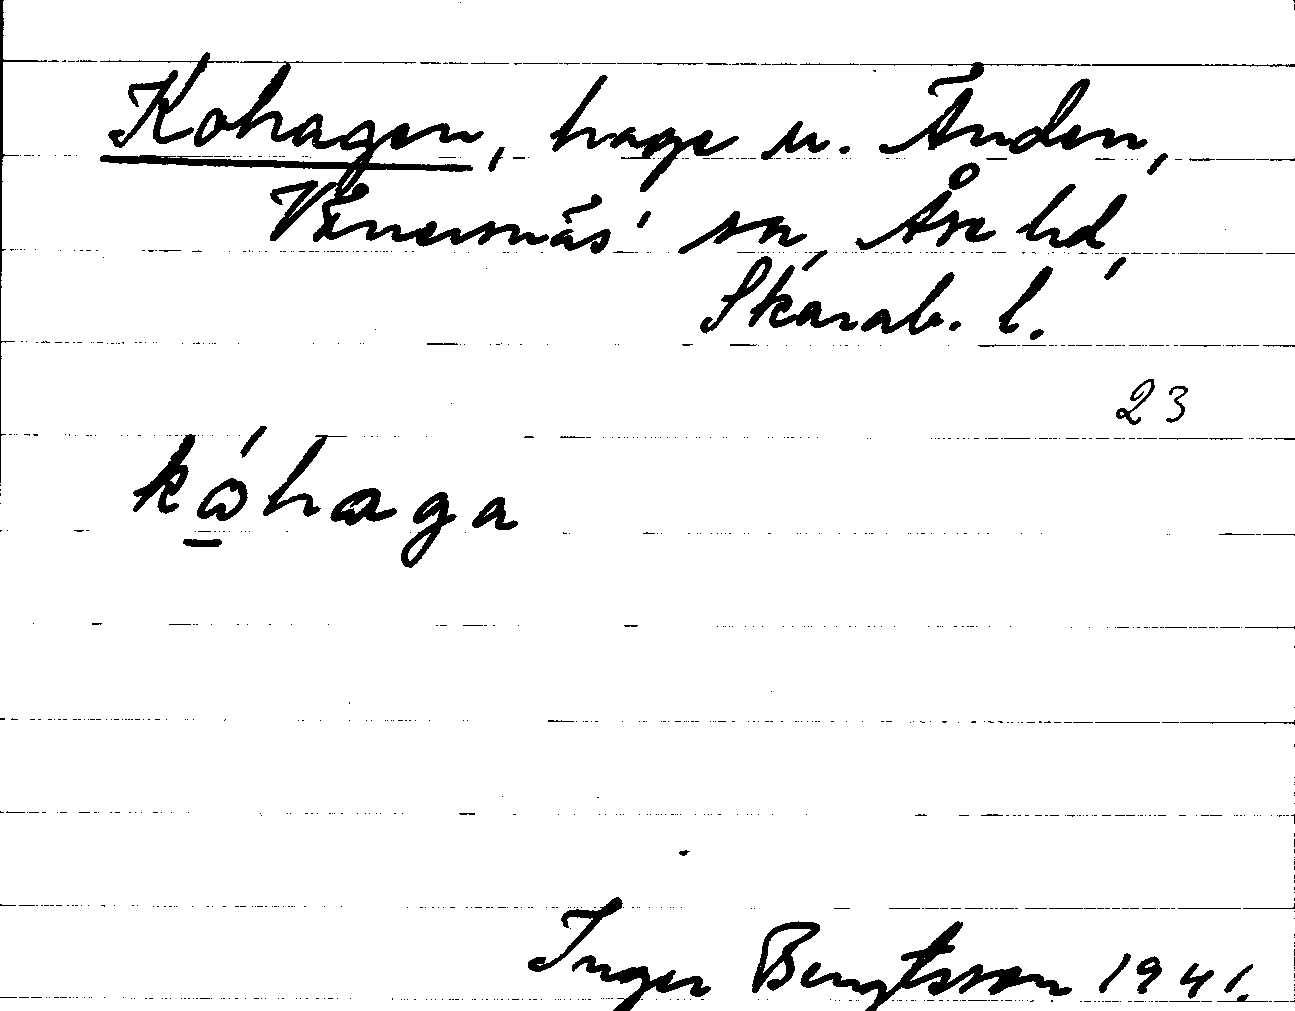 Kohagen, hage u. Änden,
Vänersnäs' sn, Åse hd,
Skarab. l.
23
kǿhaga
Inger Bengtsson 1941.